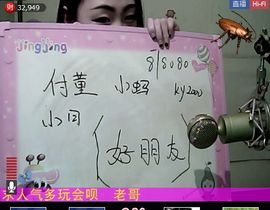 32,949
直播 Hi-Fi
jingjing
8/5080
付董 小蚂 ky2000
小回
(好朋友)
乐人气多玩会呗 老哥